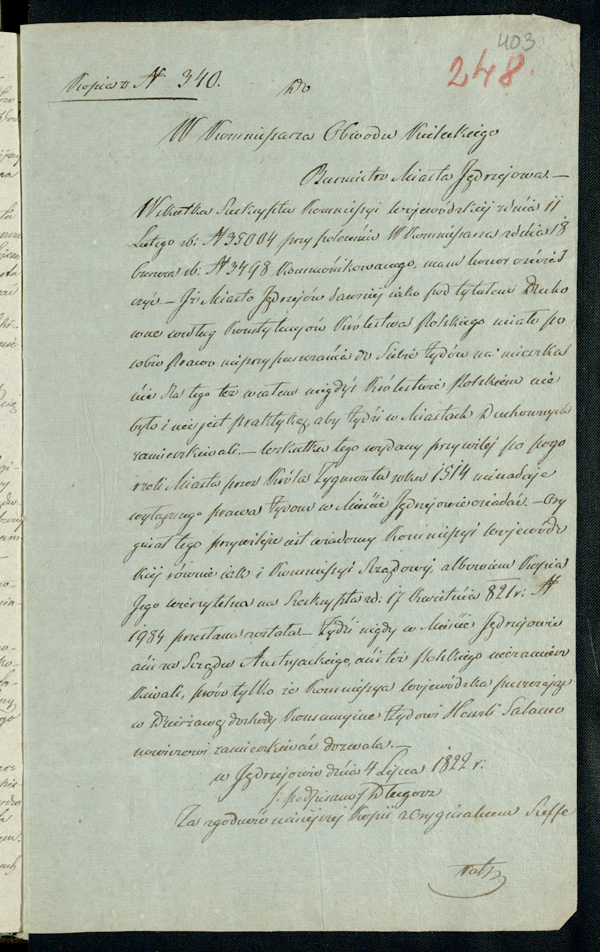 403
248.
Kopia z N 340.
Do
W Kommissarza Obwodu Kieleckiego
Burmistrz Miasta Jędrzejowa. —
W skutku Reskryptu Kommissyi Wojewódzkiej z dnia 11
Lutego rb: N 35004 przy poleceniu W Kommissarza z dnia 18
Czerwca rb: N 3498 kommunikowanego, mam honor oświad
czyć — Iż Miasto Jędrzejów dawniej iako pod tytułem Ducho
wne według Konstytucyiów Królestwa Polskiego miało po
sobie Prawo nieprzypuszczania do siebie Żydów na mieszka
nie dla tego też w całem niegdyś Królestwie Polskiem nie
było i nie jest praktyką, aby Żydzi w Miastach Duchownych
zamieszkiwali. — w skutku tego wydany przywilej po pogo
rzeli Miasta przez Króla Zygmunta roku 1514 nienadaje
wyłącznego prawa Żydom w Mieście Jędrzejowie osiadać. — Ory
ginał tego przywileju iest wiadomy Kommissyi Wojewódz
kiej równie iak i Kommissyi Rządowej, albowiem Kopia
Jego wierzytelna na Reskrypt z d: 17 Kwietnia 821 r. N
1984 przesłana została. — Żydzi nigdy w Mieście Jędrzejowie
ani za Rządu Austryackiego, ani też Polskiego niezamiesz
kiwali, prócz tylko że Kommissya Wojewódzka puszczając
w Dzierżawę dochody Konsumcyine Żydowi Herszli Salamo
nowiczowi zamieszkiwać dozwala. —
w Jędrzejowie dnia 4 Lipca 1822 r.
/: podpisano :/ Długosz
Za zgodność niniejszej Kopii z Oryginałem